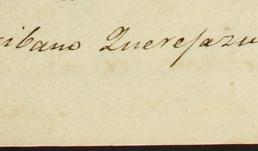 cibano Querejazu